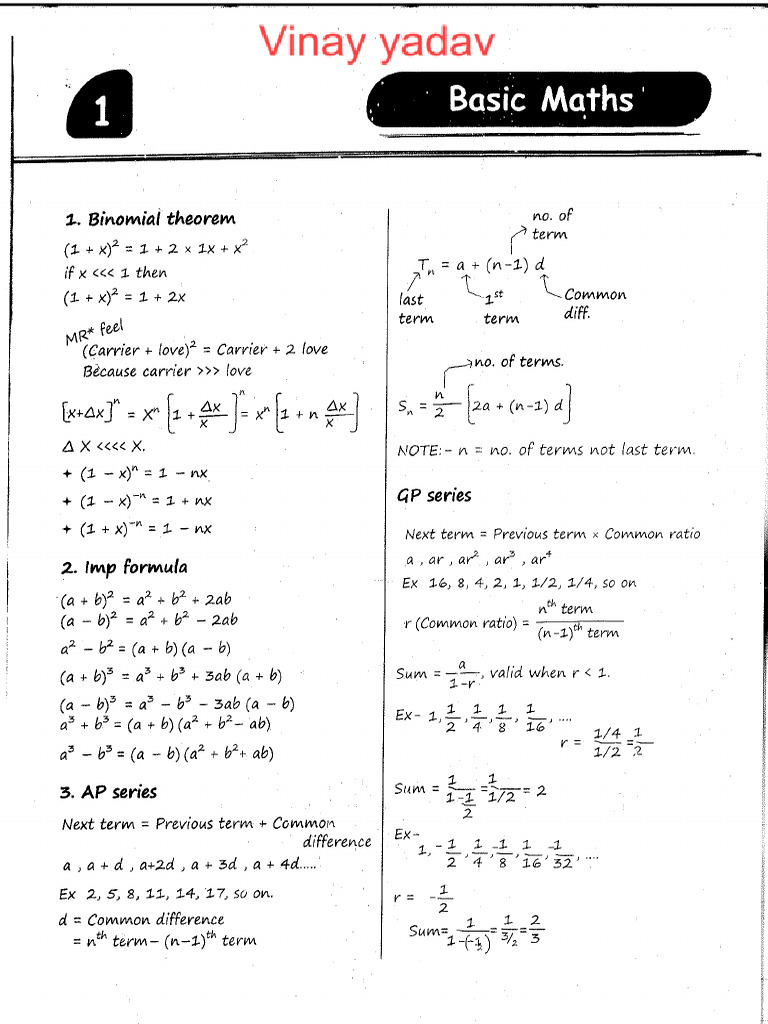 Vinay yadav
1
Basic Maths
1. Binomial theorem
(1 + x)² = 1 + 2 × 1x + x²
if x <<< 1 then
(1 + x)² = 1 + 2x
MR* feel
(Carrier + love)² = Carrier + 2 love
Because carrier >>> love
[x+Δx]ⁿ = Xⁿ [1 + Δx/x]ⁿ = xⁿ [1 + n Δx/x]
Δ X <<<< X.
+ (1 − x)ⁿ = 1 − nx
+ (1 − x)⁻ⁿ = 1 + nx
+ (1 + x)⁻ⁿ = 1 − nx
2. Imp formula
(a + b)² = a² + b² + 2ab
(a − b)² = a² + b² − 2ab
a² − b² = (a + b) (a − b)
(a + b)³ = a³ + b³ + 3ab (a + b)
(a − b)³ = a³ − b³ − 3ab (a − b)
a³ + b³ = (a + b) (a² + b² − ab)
a³ − b³ = (a − b) (a² + b² + ab)
3. AP series
Next term = Previous term + Common
difference
a , a + d , a+2d , a + 3d, a + 4d.....
Ex 2, 5, 8, 11, 14, 17, so on.
d = Common difference
= nᵗʰ term − (n−1)ᵗʰ term
no. of
term
Tₙ = a + (n−1) d
last
term
1ˢᵗ
term
Common
diff.
no. of terms.
Sₙ = n/2 [2a + (n−1) d]
NOTE:− n = no. of terms not last term.
GP series
Next term = Previous term × Common ratio
a , ar , ar² , ar³ , ar⁴
Ex 16, 8, 4, 2, 1, 1/2, 1/4, so on
r (Common ratio) = nᵗʰ term / (n−1)ᵗʰ term
Sum = a/1−r, valid when r < 1.
Ex− 1, 1/2, 1/4, 1/8, 1/16, ....
r = 1/4 / 1/2 = 1/2
Sum = 1/(1−1/2) = 1/1/2 = 2
Ex−
1, −1/2, 1/4, −1/8, 1/16, −1/32, ....
r = −1/2
Sum= 1/1−(−1/2) = 1/3/2 = 2/3